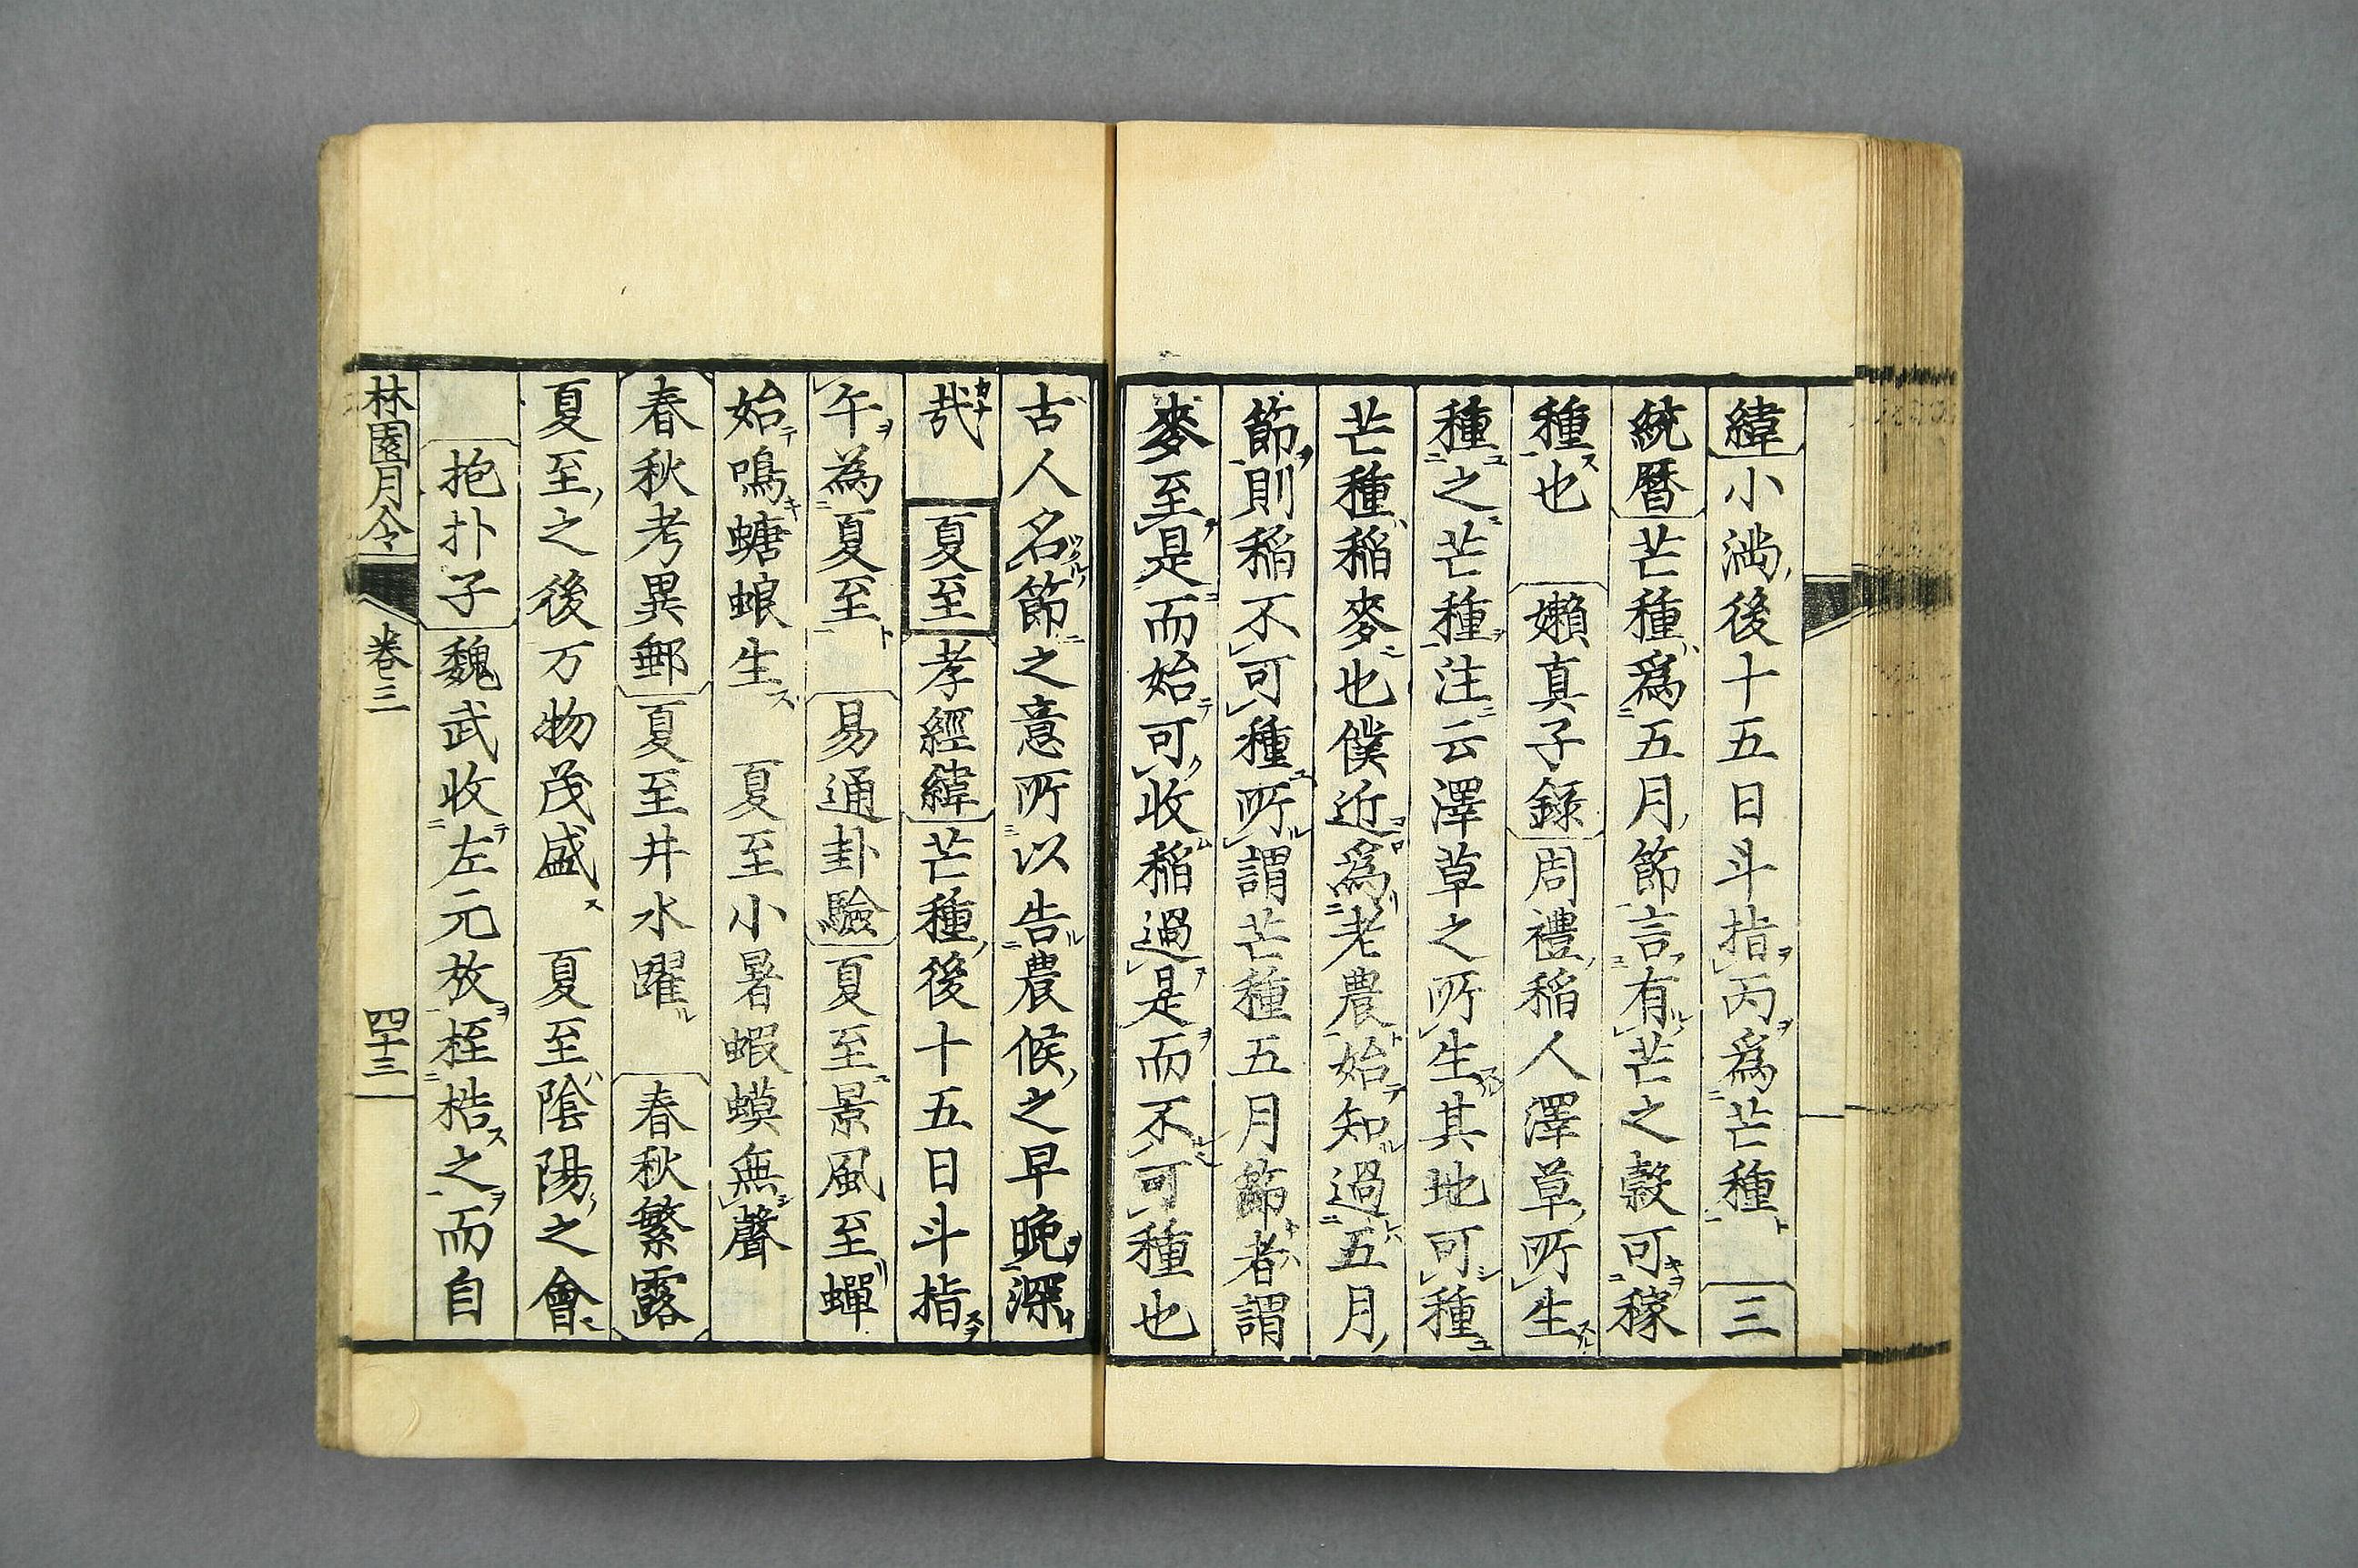 緯小滿後十五日斗指丙爲芒種三
統曆芒種爲五月節言有芒之穀可稼
種也嬾真子錄周禮稻人澤草所生
種之芒種注云澤草之所生其地可種
芒種稻麥也僕近爲老農始知過五月
節則稻不可種所謂芒種五月節者謂
麥至是而始可收稻過是而不可種也
古人名節之意所以告農候之早晚深
哉夏至孝經緯芒種後十五日斗指
午為夏至易通卦驗夏至景風至蟬
始鳴螗蜋生夏至小暑蝦蟆無聲
春秋考異郵夏至井水躍春秋繁露
夏至之後万物茂盛夏至陰陽之會
抱扑子魏武收左元放桎梏之而自
林園月令卷三四十三